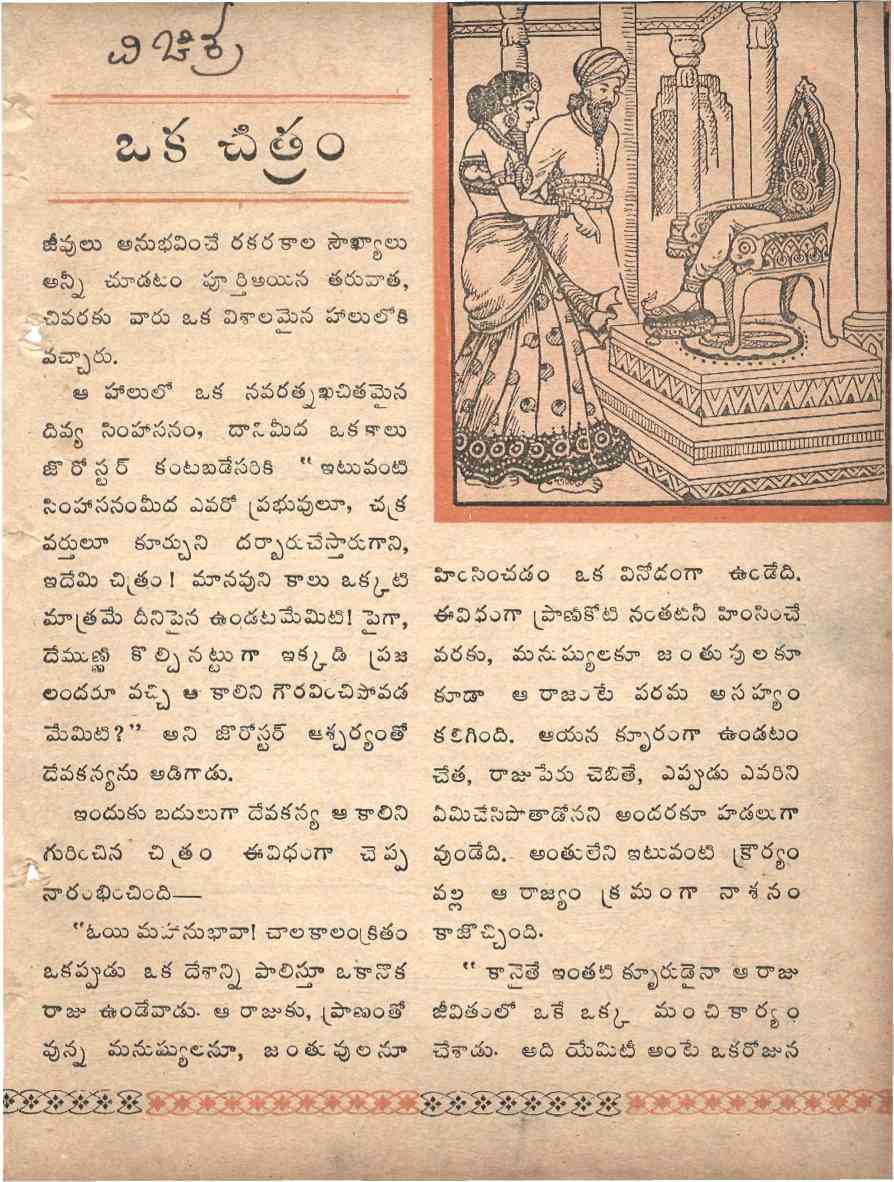 ఒక చిత్రం
జీవులు అనుభవించే రకరకాల సౌఖ్యాలు
అన్నీ చూడటం పూర్తిఅయిన తరువాత,
చివరకు వారు ఒక విశాలమైన హాలులోకి
వచ్చారు.
ఆ హాలులో ఒక నవరత్నఖచితమైన
దివ్య సింహాసనం, దానిమీద ఒకకాలు
జొరోస్టర్ కంటబడేసరికి “ఇటువంటి
సింహాసనంమీద ఎవరో ప్రభువులూ, చక్ర
వర్తులూ కూర్చుని దర్బారుచేస్తారుగాని,
ఇదేమి చిత్రం! మానవుని కాలు ఒక్కటి
మాత్రమే దీనిపైన ఉండటమేమిటి! పైగా,
దేముణ్ణి కొల్చినట్టుగా ఇక్కడి ప్రజ
లందరూ వచ్చి ఆ కాలిని గౌరవించిపోవడ
మేమిటి?” అని జొరోస్టర్ ఆశ్చర్యంతో
దేవకన్యను అడిగాడు.
ఇందుకు బదులుగా దేవకన్య ఆ కాలిని
గురించిన చిత్రం ఈవిధంగా చెప్ప
నారంభించింది—
“ఓయి మహానుభావా! చాలకాలంక్రితం
ఒకప్పుడు ఒక దేశాన్ని పాలిస్తూ ఒకానొక
రాజు ఉండేవాడు. ఆ రాజుకు, ప్రాణంతో
వున్న మనుష్యులనూ, జంతువులనూ
హింసించడం ఒక వినోదంగా ఉండేది.
ఈవిధంగా ప్రాణికోటి నంతటినీ హింసించే
వరకు, మనుష్యులకూ జంతువులకూ
కూడా ఆ రాజంటే పరమ అసహ్యం
కలిగింది. ఆయన క్రూరంగా ఉండటం
చేత, రాజుపేరు చెబితే, ఎప్పుడు ఎవరిని
ఏమిచేసిపోతాడోనని అందరకూ హడలుగా
వుండేది. అంతులేని ఇటువంటి క్రౌర్యం
వల్ల ఆ రాజ్యం క్రమంగా నాశనం
కాజొచ్చింది.
“కానైతే ఇంతటి క్రూరుడైనా ఆ రాజు
జీవితంలో ఒకే ఒక్క మంచికార్యం
చేశాడు. అది యేమిటీ అంటే ఒకరోజున